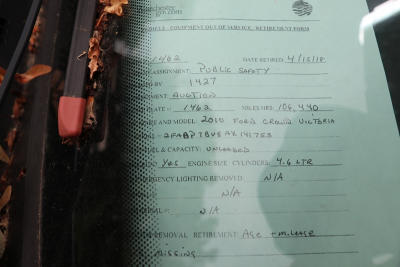 gov.com
EQUIPMENT OUT OF SERVICE / RETIREMENT FORM
1462 DATE RETIRED 4/15/18
ASSIGNMENT: PUBLIC SAFETY
BY 1427
AUCTION
1462 MILES/HRS: 106,440
AND MODEL: 2010 FORD CROWN VICTORIA
2FABP7BV5AX141753
& CAPACITY: UNLEADED
YES ENGINE SIZE / CYLINDERS: 4.6 LTR
EMERGENCY LIGHTING REMOVED N/A
N/A
N/A
REMOVAL / RETIREMENT: AGE + MILEAGE
MISSING